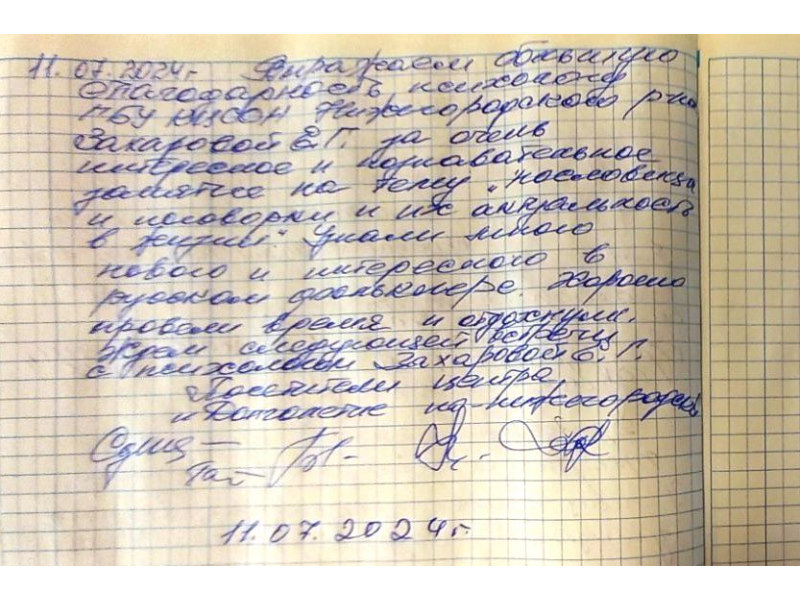 11.07.2024г. Выражаем большую
благодарность психологу
ГБУ КЦСОН Нижегородского р-на
Захаровой Е.Г. за очень
интересное и познавательное
занятие на тему „Пословицы
и поговорки и их актуальность
в жизни". Узнали много
нового и интересного в
русском фольклоре. Хорошо
провели время и отдохнули.
Ждем следующей встречи
с психологом Захаровой Е.Г.
Посетители центра
„Долголетие по-нижегородски
11.07.2024г.